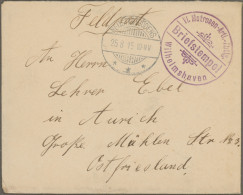 Feldpost
II. Matrosen-
Briefstempel
Wilhelmshaven
An Herrn
Lehrer Ebel
in Aurich
Große Mühlen Str.
Ostfriesland